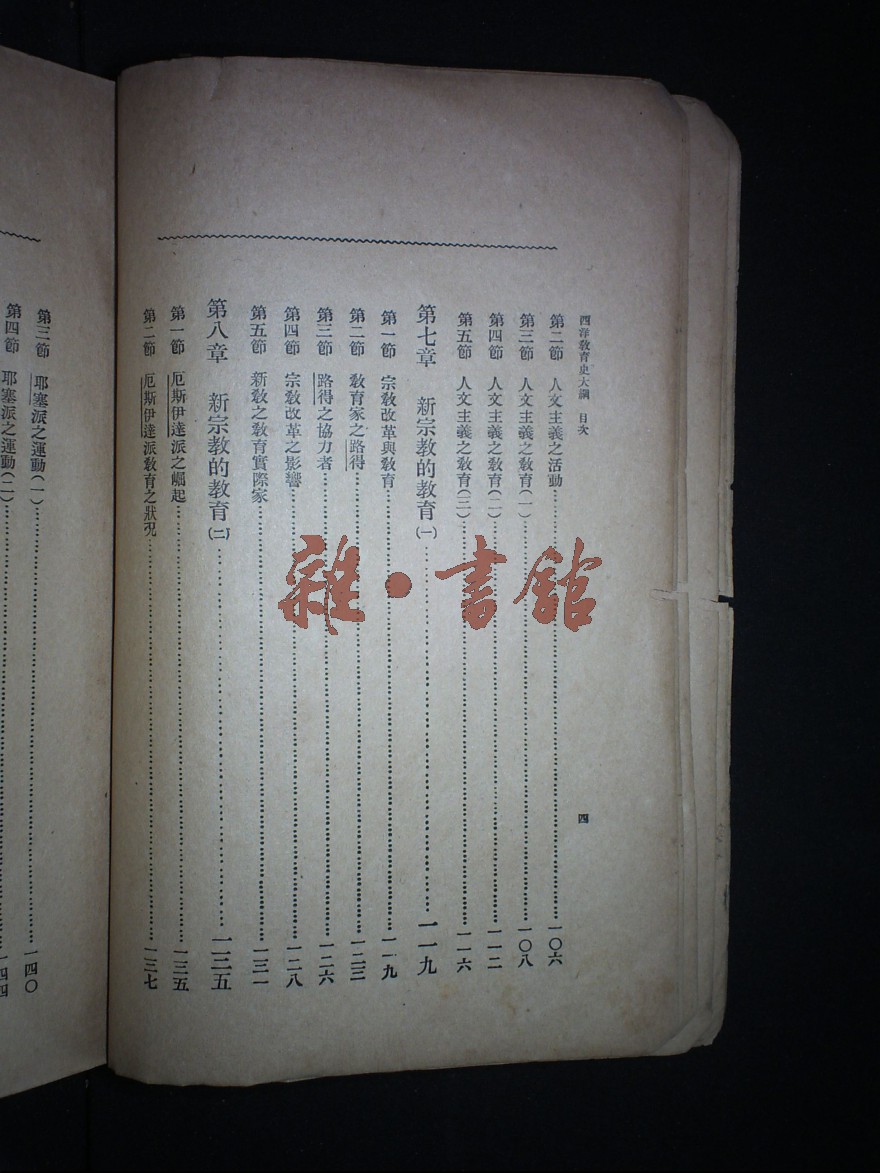 西洋敎育史大綱 目次
四
第二節 人文主義之活動 一〇六
第三節 人文主義之敎育(一) 一〇八
第四節 人文主義之敎育(二) 一一二
第五節 人文主義之敎育(三) 一一六
第七章 新宗教的教育(一) 一一九
第一節 宗敎改革與敎育 一一九
第二節 敎育家之路得 一二三
第三節 路得之協力者 一二六
第四節 宗敎改革之影響 一二八
第五節 新敎之敎育實際家 一三一
第八章 新宗教的教育(二) 一三五
第一節 厄斯伊達派之崛起 一三五
第二節 厄斯伊達派敎育之狀况 一三七
第三節 耶塞派之運動(一) 一四〇
第四節 耶塞派之運動(二) 一四四
雜·書館